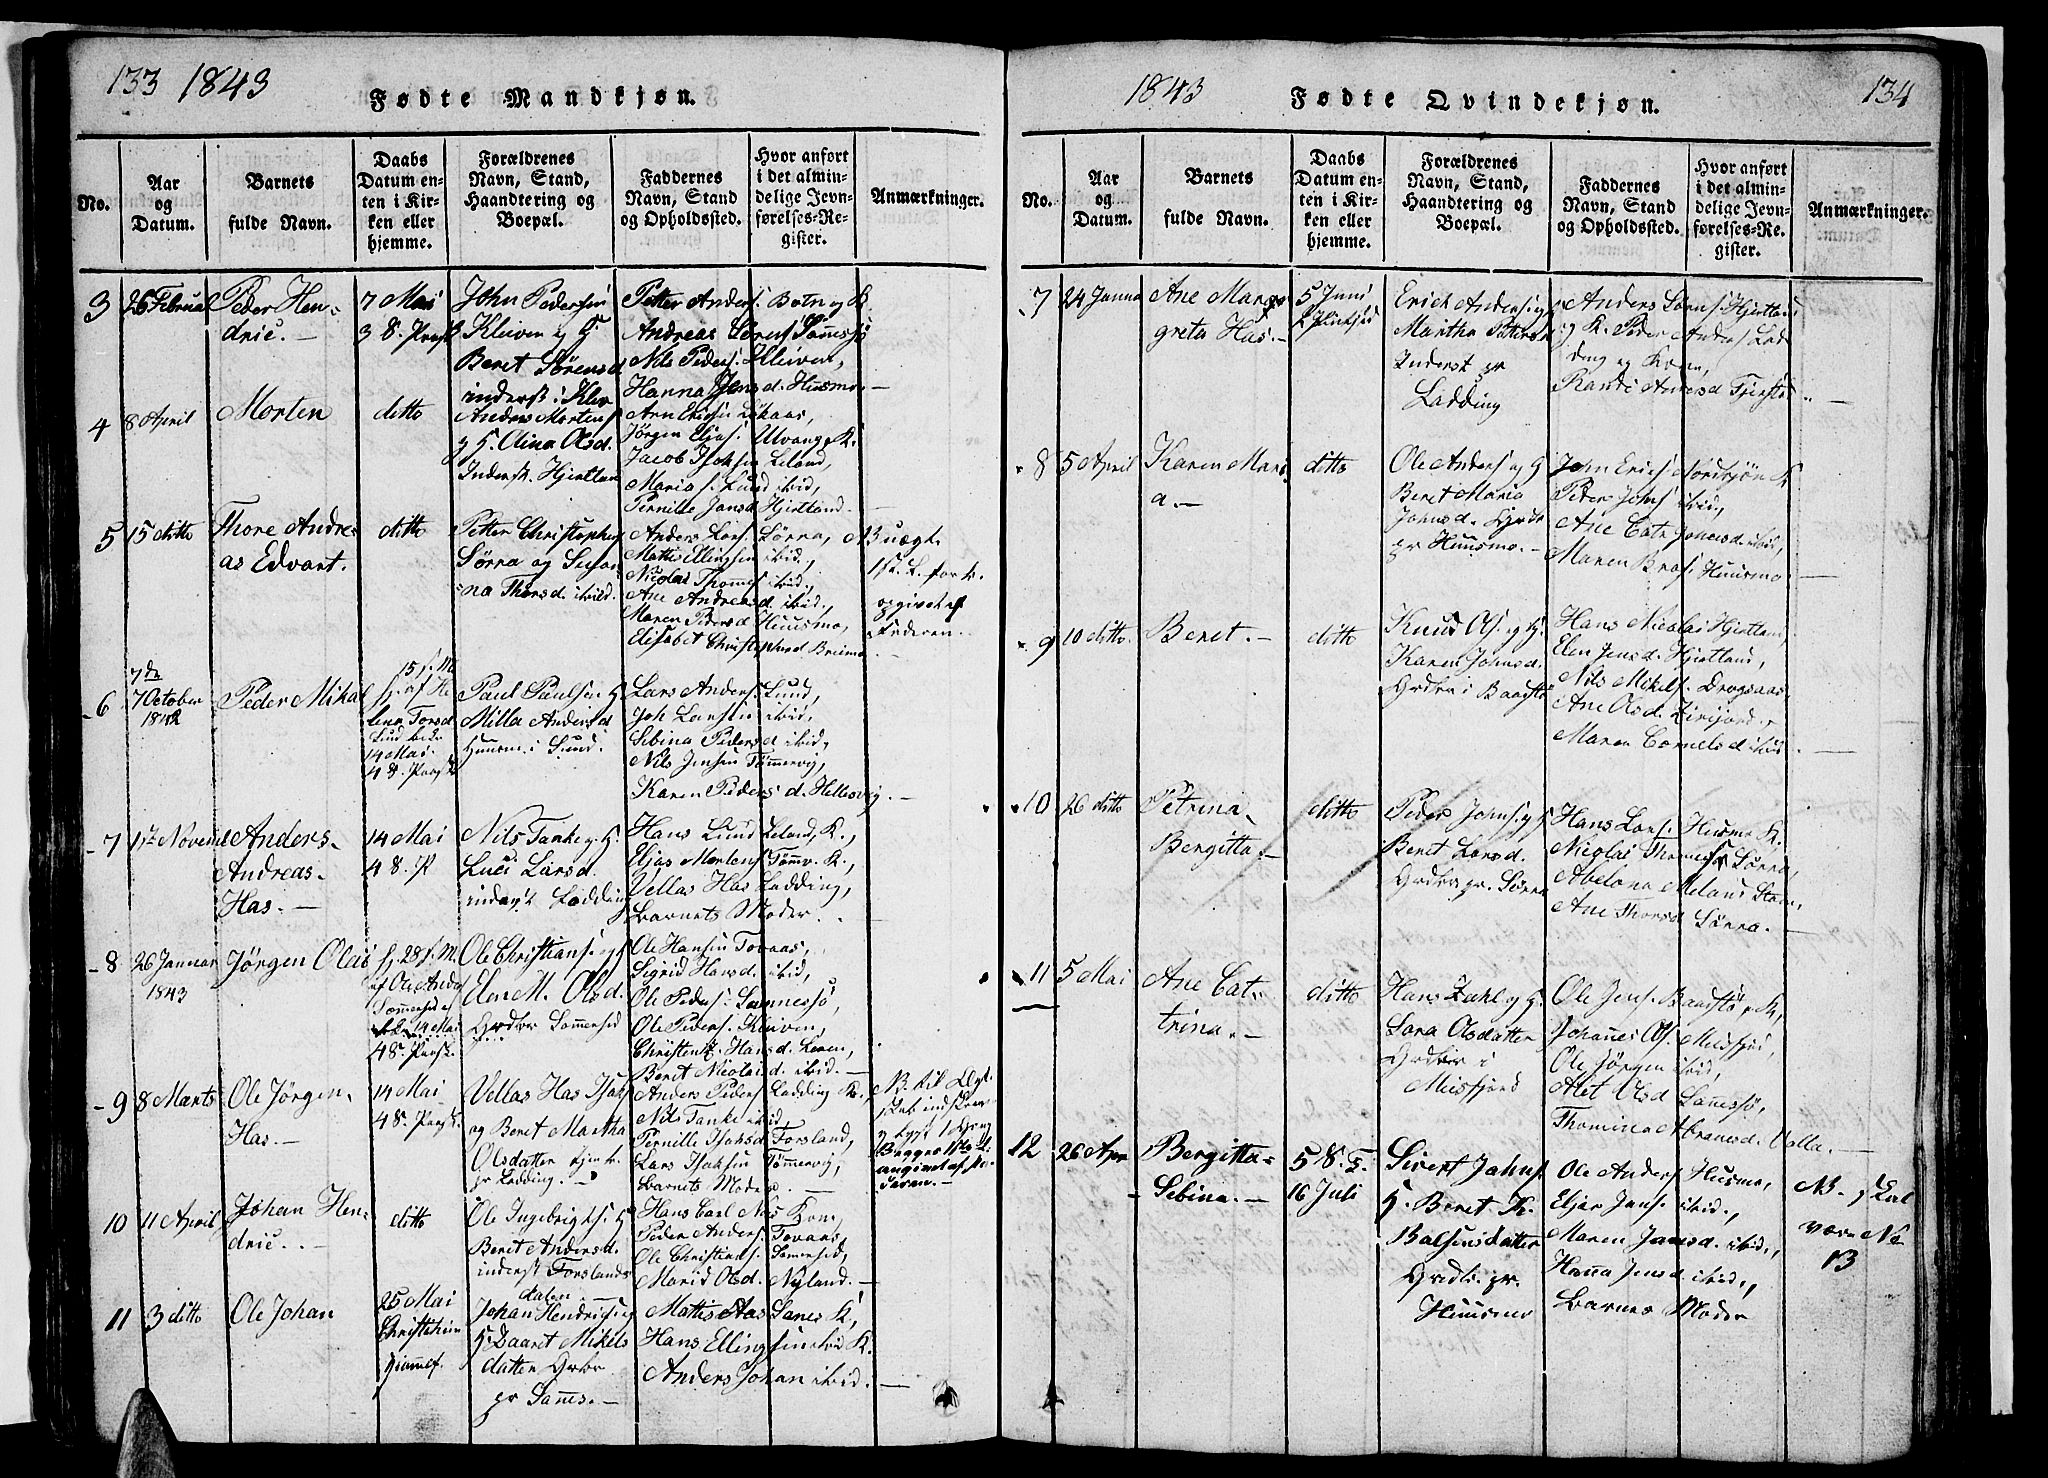 133 1843
Fødte Mandkjøn.
No.
Aar
og
Datum.
Barnets
fulde Navn.
Daabs
Datum en-
ten i Kir-
ken eller
hjemme.
Forældrenes
Navn, Stand,
Haandtering og
Boepæl.
Faddernes
Navn, Stand
og Opholdssted.
Hvor anført
i det almin-
delige Jevn-
førelses-Re-
gister.
Anmærkninger.
3
26 Februar
Peder Hen-
dric.
7 Mai
3 S. Paask
John Pedersen
Kleiven og H.
Beret Sørensd
inderst i Klev
Petter Anders. Botn og K.
Andreas Sørens Sannessø
Nils Peders. Kleiven,
Hanna Jensd. Husmo.
4
8 April
Morten
ditto
Anders Mortens
og H. Elina Olsd.
Inderst. Hjertland
Jørgen Eljas. Ulvang K.
Jacob Isaksen Leland,
Maria s. Lund ibid,
Pernille Jansd Hjertland.
5
15 ditto
Thore Andre-
as Edvart.
ditto
Petter Christopher
Sørra og Susan-
na Thorsd. ibid.
Anders Lars. Sørra,
Mattis Ellingsen ibid.,
Nicolai Thommes ibid.,
Ane Andreasd. ibid.,
Maren Pedersd Huusmo,
Elisabet Christophersd Breimo
NB uægte
opgivet af
Faderen.
6
7de
7 October
1842
Peder Mikal
14 Mai
4 S. Paask
Paul Paulsen H.
Milla Andersd
Huusm. i Lund.
Lars Anders. Lund,
Joh Larsen ibid,
Sebina Pedersd ibid,
Nils Jensen Tømmervig,
Karen Pedersd. Hellesvig.
7
1ste Novemb
Anders
Andreas
Has.
14 Mai
4 S. P
Nils Tanke og H.
Luci Larsd.
inderst Ladding
Hans Lund Leland, K.,
Eljas Mortens Tømv. K.,
Vellas Has Ladding,
Barnets Moder.
8
26 Januar
1843
Jørgen Oleis
hj. 28 s. M.
af Ole Anders
Sommersed
14 Mai
4 S. Paask.
Ole Christians. og H
Elen M. Olsd.
Grdbr Sommersed
Ole Hansen Tovaas,
Sigrid Hansd. ibid,
Ole Peders. Sannessø,
Ole Peders. Kleiven,
Christen. Hansd. Leren,
Beret Nicolaid. ibid.
9
8 Marts
Ole Jørgen
Has.
14 Mai
4 S. Paask.
Vellas Has Isaks
og Beret Martha
Olsdatter tjen.
pr Ladding.
Anders Peders Ladding K.,
Nils Tanke ibid
Pernille Isaksd Forsland,
Lars Isaksen Tømmervig,
Barnets Moder
10
11 April
Johan Hen-
dric.
ditto
Ole Ingebrigts. H
Beret Andersd.
inderst Forslands
dalen
Hans Carl Nas Kom,
Peder Anders. Tovaas,
Ole Christians. Somersed,
Marid Olsd. Nyland.
11
3 ditto
Ole Johan
25 Mai
Christihim
himmelf.
Johan Hendricsen
H. Zaaret Mikels
datter Grbr
pr Sanes.
Mattis Aas Sanes K,
Hans Ellingsen ibid K.
Anders Johan ibid.
1843
Fødte Qvindekjøn.
134
No.
Aar
og
Datum.
Barnets
fulde Navn.
Daabs
Datum en-
ten i Kir-
ken eller
hjemme.
Forældrenes
Navn, Stand,
Haandtering og
Boepæl.
Faddernes
Navn, Stand
og Opholdssted.
Hvor anført
i det almin-
delige Jevn-
førelses-Re-
gister.
Anmærkninger.
7
24 Janua
Ane Mar-
greta Has.
5 Juni
2 Pintsed
Erich Anders og
Martha Petersd
Inderst pr
Ladding
Anders Sørens. Hjertland
og K. Peder Anders Lad-
ding og Kone,
Randi Arnesd
8
5 April
Karen Mari-
a.
ditto
Ole Anders og H
Beret Maria
Johnsd. Grdbr
pr Huusmo.
John Erics. Nordsjøn K
Peder Johns ibid,
Ane Catr Jonesd. ibid,
Maren Bras. Huusmo.
9
10 ditto.
Beret.
ditto
Knud Ols. og H.
Karen Johnsd.
Grdbr i Baastø
Hans Nicolai Hjertland,
Elen Jensd. Hjertland,
Nils Mikels. Dragsaas
Ane Olsd.
Maren Cornelsd ibid.
10
26 ditto
Petrina
Bergitta.
ditto
Peder Johns. og H
Beret Larsd.
Grdbr pr. Sørra
Hans Lars. Husmo K.
Nicolai Thommes Sørra,
Abelona
Ane Thorsd Sørra.
11
5 Mai
Ane Cat-
trina.
ditto
Hans Zahl og H.
Sara Olsdatter
Grdbr i
Meisfjord
Ole Jens. Baastø K,
Johannes Ols. Meisfjord,
Ole Jørgen ibid,
Alet Olsd Sannessø,
Thominea Abramsd. Valla.
12
26 Apr
Bergitta
Sebina.
5 S. T.
16 Juli
Sivert Johns.
H. Beret K.
Balsersdatter
Grdb. pr.
Huusmo
Ole Anders Husmo,
Eljar Jans. ibid.,
Maren Jansd. ibid.,
Hanna Jensd ibid.,
Barnes Moder
NB. skal
være No
13